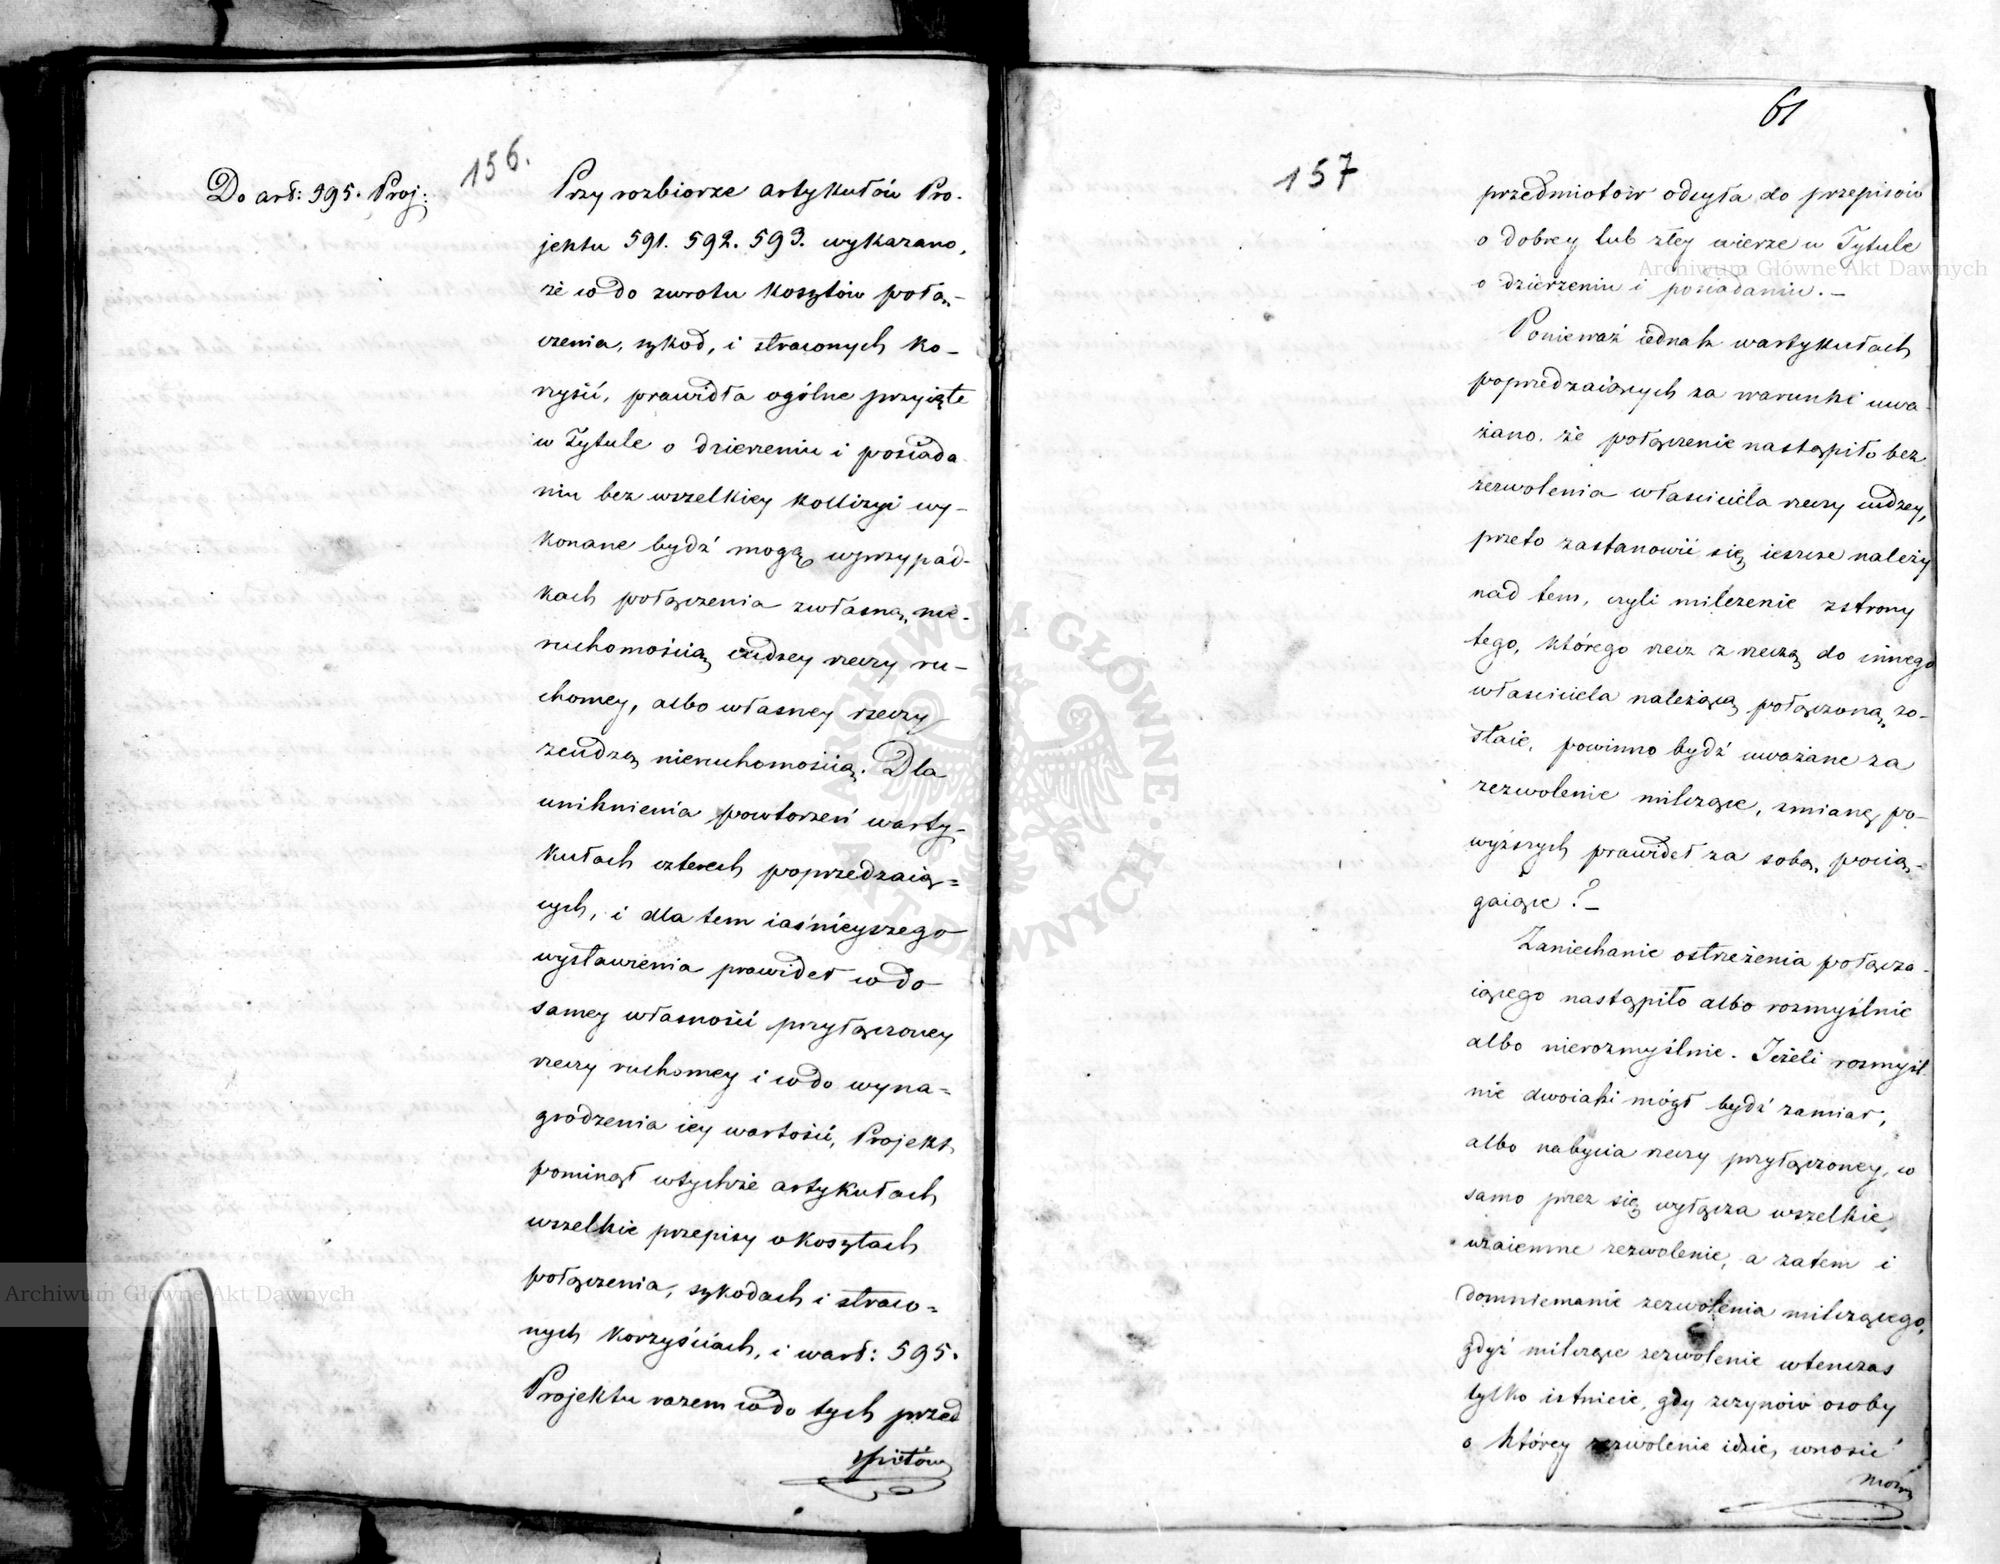 156.
Do art: 595. Proj:
Przy rozbiorze artykułów Pro-
jektu 591. 592. 593. wykazano,
że co do zwrotu kosztów połą-
czenia, szkod, i straconych ko-
rzyści, prawidła ogólne przyięte
w Tytule o dzierzeniu i posiada
niu bez wszelkiey kollizyi wy-
konane bydź mogą w przypad-
kach połączenia zwłasną nie-
ruchomością cudzey rzeczy ru-
chomey, albo własney rzeczy
zcudzą nieruchomością. Dla
uniknienia powtorzeń warty-
kułach czterech poprzedzaią-
cych, i dla tem iaśnieyszego
wystawienia prawideł co do
samey własności przyłączoney
rzeczy ruchomey i co do wyna-
grodzenia iey wartości, Projekt
pominął wtychże artykułach
wszelkie przepisy o kosztach
połączenia, szkodach i straco-
nych korzyściach, i wart: 595.
Projektu razem co do tych przed
miotów
61
157
przedmiotów odsyła do przepisów
o dobrey lub złey wierze w Tytule
o dzierzeniu i posiadaniu. —
Ponieważ iednak wartykułach
poprzedzaiących za warunki uwa-
żano, że połączenie nastąpiło bez
zezwolenia właściciela rzeczy cudzey,
przeto zastanowić się ieszcze należy
nad tem, czyli milczenie zstrony
tego, którego rzecz z rzeczą do innego
właściciela należącą połączoną zo-
staie, powinno bydź uważane za
zezwolenie milczące, zmianę po-
wyższych prawideł za sobą pocią-
gaiące? —
Zaniechanie ostrzeżenia połącza-
iącego nastąpiło albo rozmyślnie
albo nierozmyślnie. Jeżeli rozmyśl-
nie dwoiaki mógł bydź zamiar,
albo nabycia rzeczy przyłączoney, co
samo przez się wyłącza wszelkie
wzaiemne zezwolenie, a zatem i
domniemanie zezwolenia milczącego,
gdyż milczące zezwolenie wtenczas
tylko istnieie, gdy zczynów osoby
o którey zezwolenie idzie, wnosić
można
Archiwum Główne Akt Dawnych
Archiwum Główne Akt Dawnych
ARCHIWUM GŁÓWNE AKT DAWNYCH